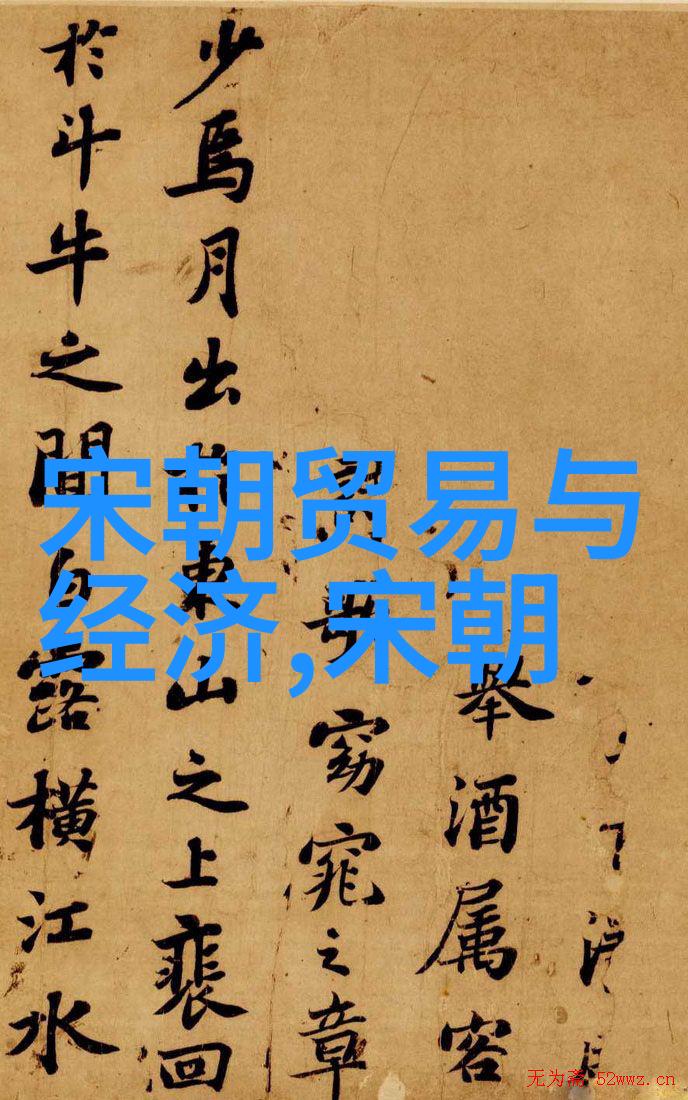 宋朝贸易与
经济,宋朝
舉酒属客
窈窕之章
少焉月出於東山之上裴回
於斗牛之間白露橫江水
无为斋 52wwz.cn